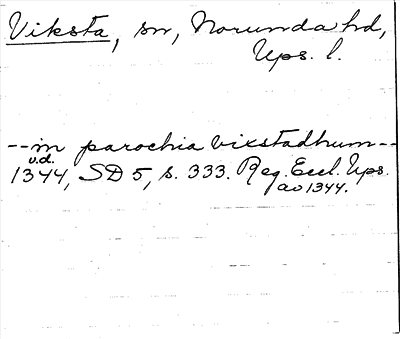 Viksta, sn, Norunda hd,
Ups. l.
--in parochia vixstadhum--
u.d.
1344, SD 5, s. 333. Reg. Eccl. Ups.
av 1344.